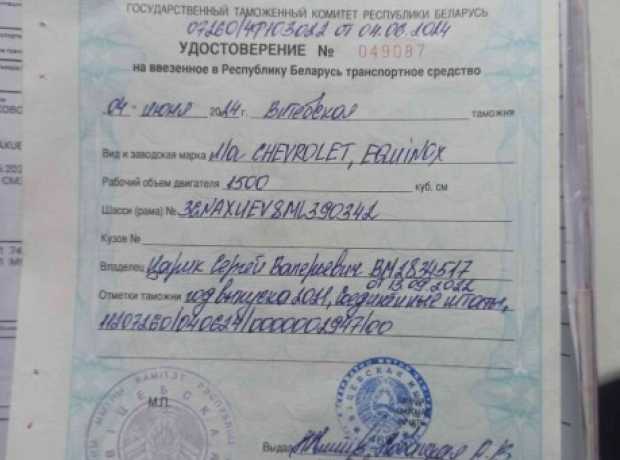 ГОСУДАРСТВЕННЫЙ ТАМОЖЕННЫЙ КОМИТЕТ РЕСПУБЛИКИ БЕЛАРУСЬ
07260/4Ф103022 от 04.06.2024
УДОСТОВЕРЕНИЕ № 049087
на ввезенное в Республику Беларусь транспортное средство
04 июня 2024г. Витебская таможня
Вид и заводская марка м/а CHEVROLET, EQUINOX
Рабочий объем двигателя 1500 куб. см
Шасси (рама) № 3GNAXUEV8ML390342
Кузов №
Владелец Царик Сергей Валерьевич ВМ2834517
от 13.09.2022
Отметки таможни год выпуска 2021, Соединенные штаты,
11207260/040624/0000002947/00
М.П.
Выдал